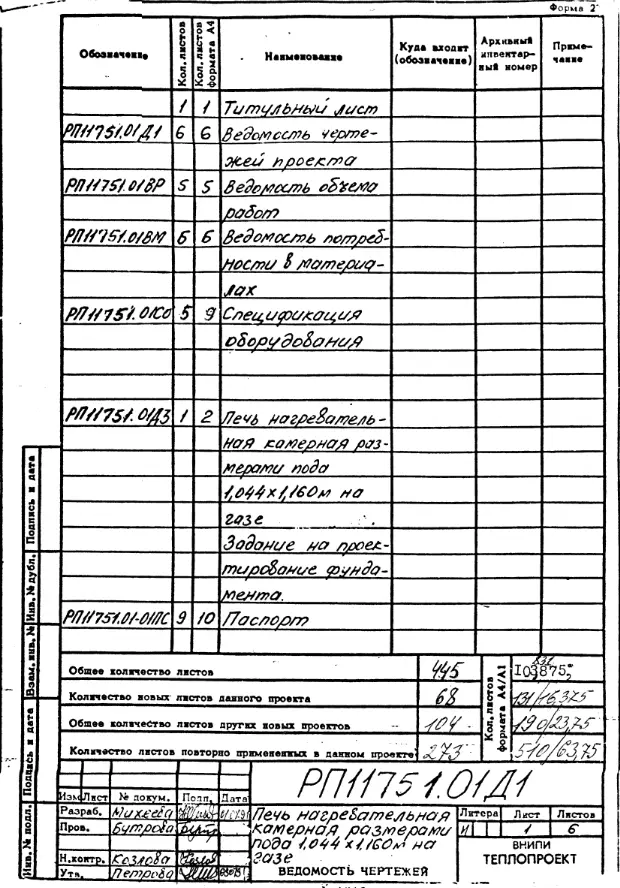 Форма 2
Обозначение Кол. листов Кол. листов формата А4 Наименование Куда входит (обозначение) Архивный инвентарный номер Примечание
1 1 Титульный лист
РП11751.01Д1 6 6 Ведомость черте-
жей проекта
РП11751.01ВР 5 5 Ведомость объема
работ
РП11751.01ВМ 6 6 Ведомость потреб-
ности в материа-
лах
РП11751.01СО 5 9 Спецификация
оборудования
РП11751.01Д3 1 2 Печь нагреватель-
ная камерная раз-
мерами пода
1,044х1,160м на
газе
Задание на проек-
тирование фунда-
мента.
РП11751.01-01ПС 9 10 Паспорт
Общее количество листов 445
Количество новых листов данного проекта 68
Общее количество листов других новых проектов 104
Количество листов повторно примененных в данном проекте 273
Кол. листов формата А4/А1
831
103,875;
131/16,375
190/23,75
510/63,75
Подпись и дата
Инв. № дубл.
Взам. инв. №
Подпись и дата
Инв. № подл.
РП11751.01Д1
Изм Лист № докум. Подп. Дата
Разраб. Михеева
Пров. Бутрова
Н.контр. Козлова
Утв. Петрова
Печь нагревательная
камерная размерами
пода 1,044 х 1,160м на
газе
ВЕДОМОСТЬ ЧЕРТЕЖЕЙ
Литера Лист Листов
И 1 6
ВНИПИ
ТЕПЛОПРОЕКТ